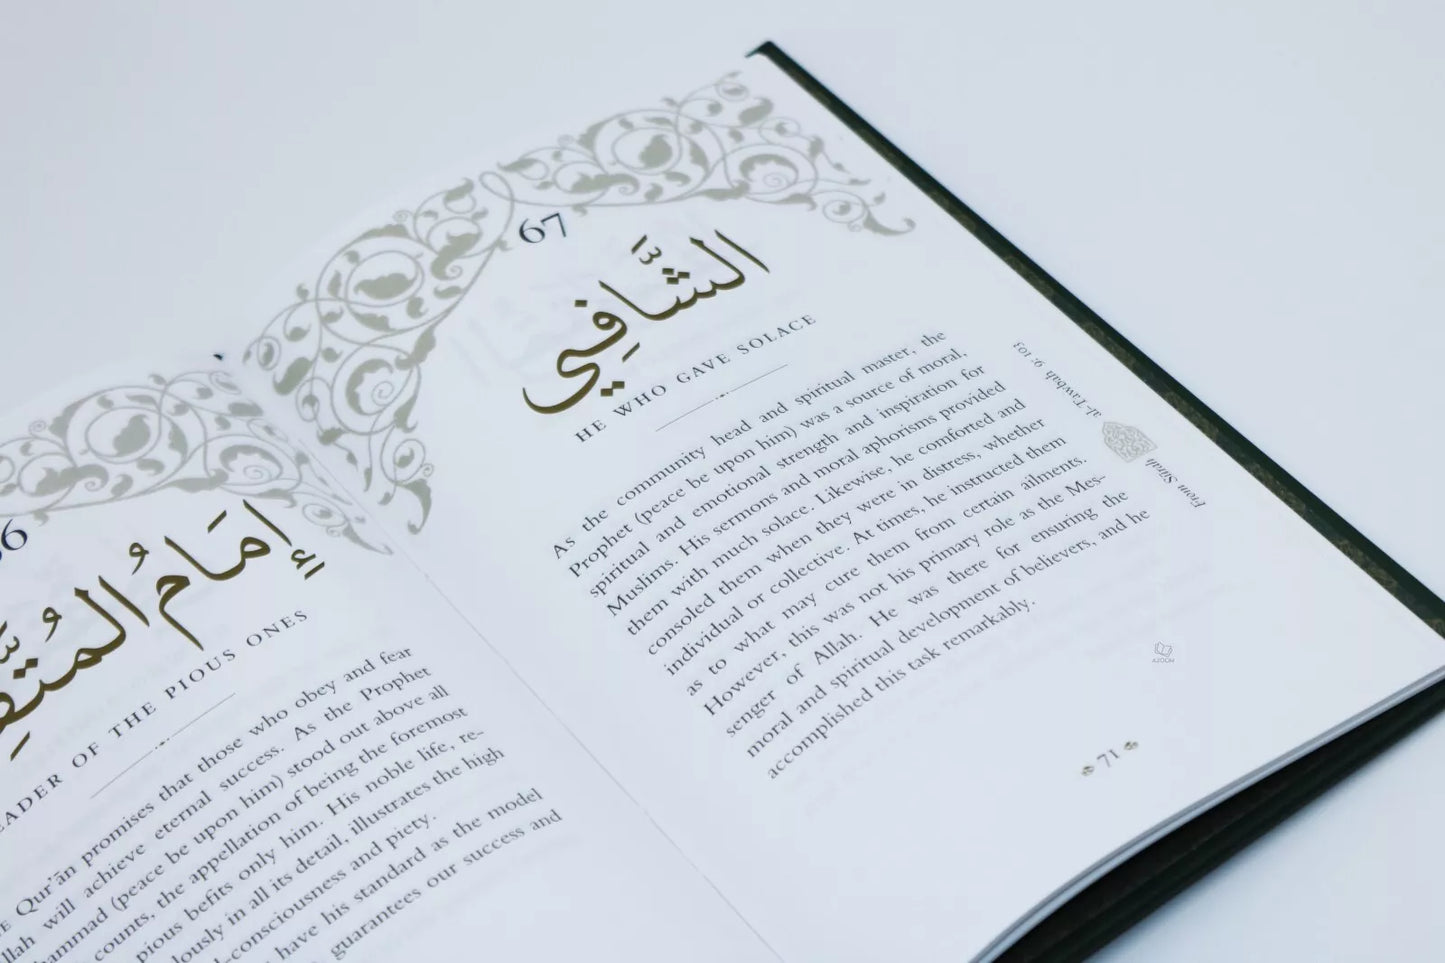 66
إِمَامُ المُتَّقِ
EADER OF THE PIOUS ONES
Qur'ān promises that those who obey and fear
will achieve eternal success. As the Prophet
(peace be upon him) stood out above all
counts, the appellation of being the foremost
pious befits only him. His noble life, re-
in all its detail, illustrates the high
-consciousness and piety.
have his standard as the model
guarantees our success and
67
الشَّافِي
HE WHO GAVE SOLACE
As the community head and spiritual master, the
Prophet (peace be upon him) was a source of moral,
spiritual and emotional strength and inspiration for
Muslims. His sermons and moral aphorisms provided
them with much solace. Likewise, he comforted and
consoled them when they were in distress, whether
individual or collective. At times, he instructed them
as to what may cure them from certain ailments.
However, this was not his primary role as the Mes-
senger of Allah. He was there for ensuring the
moral and spiritual development of believers, and he
accomplished this task remarkably.
From Sūrah al-Tawbah 9: 103
AZOOM
71